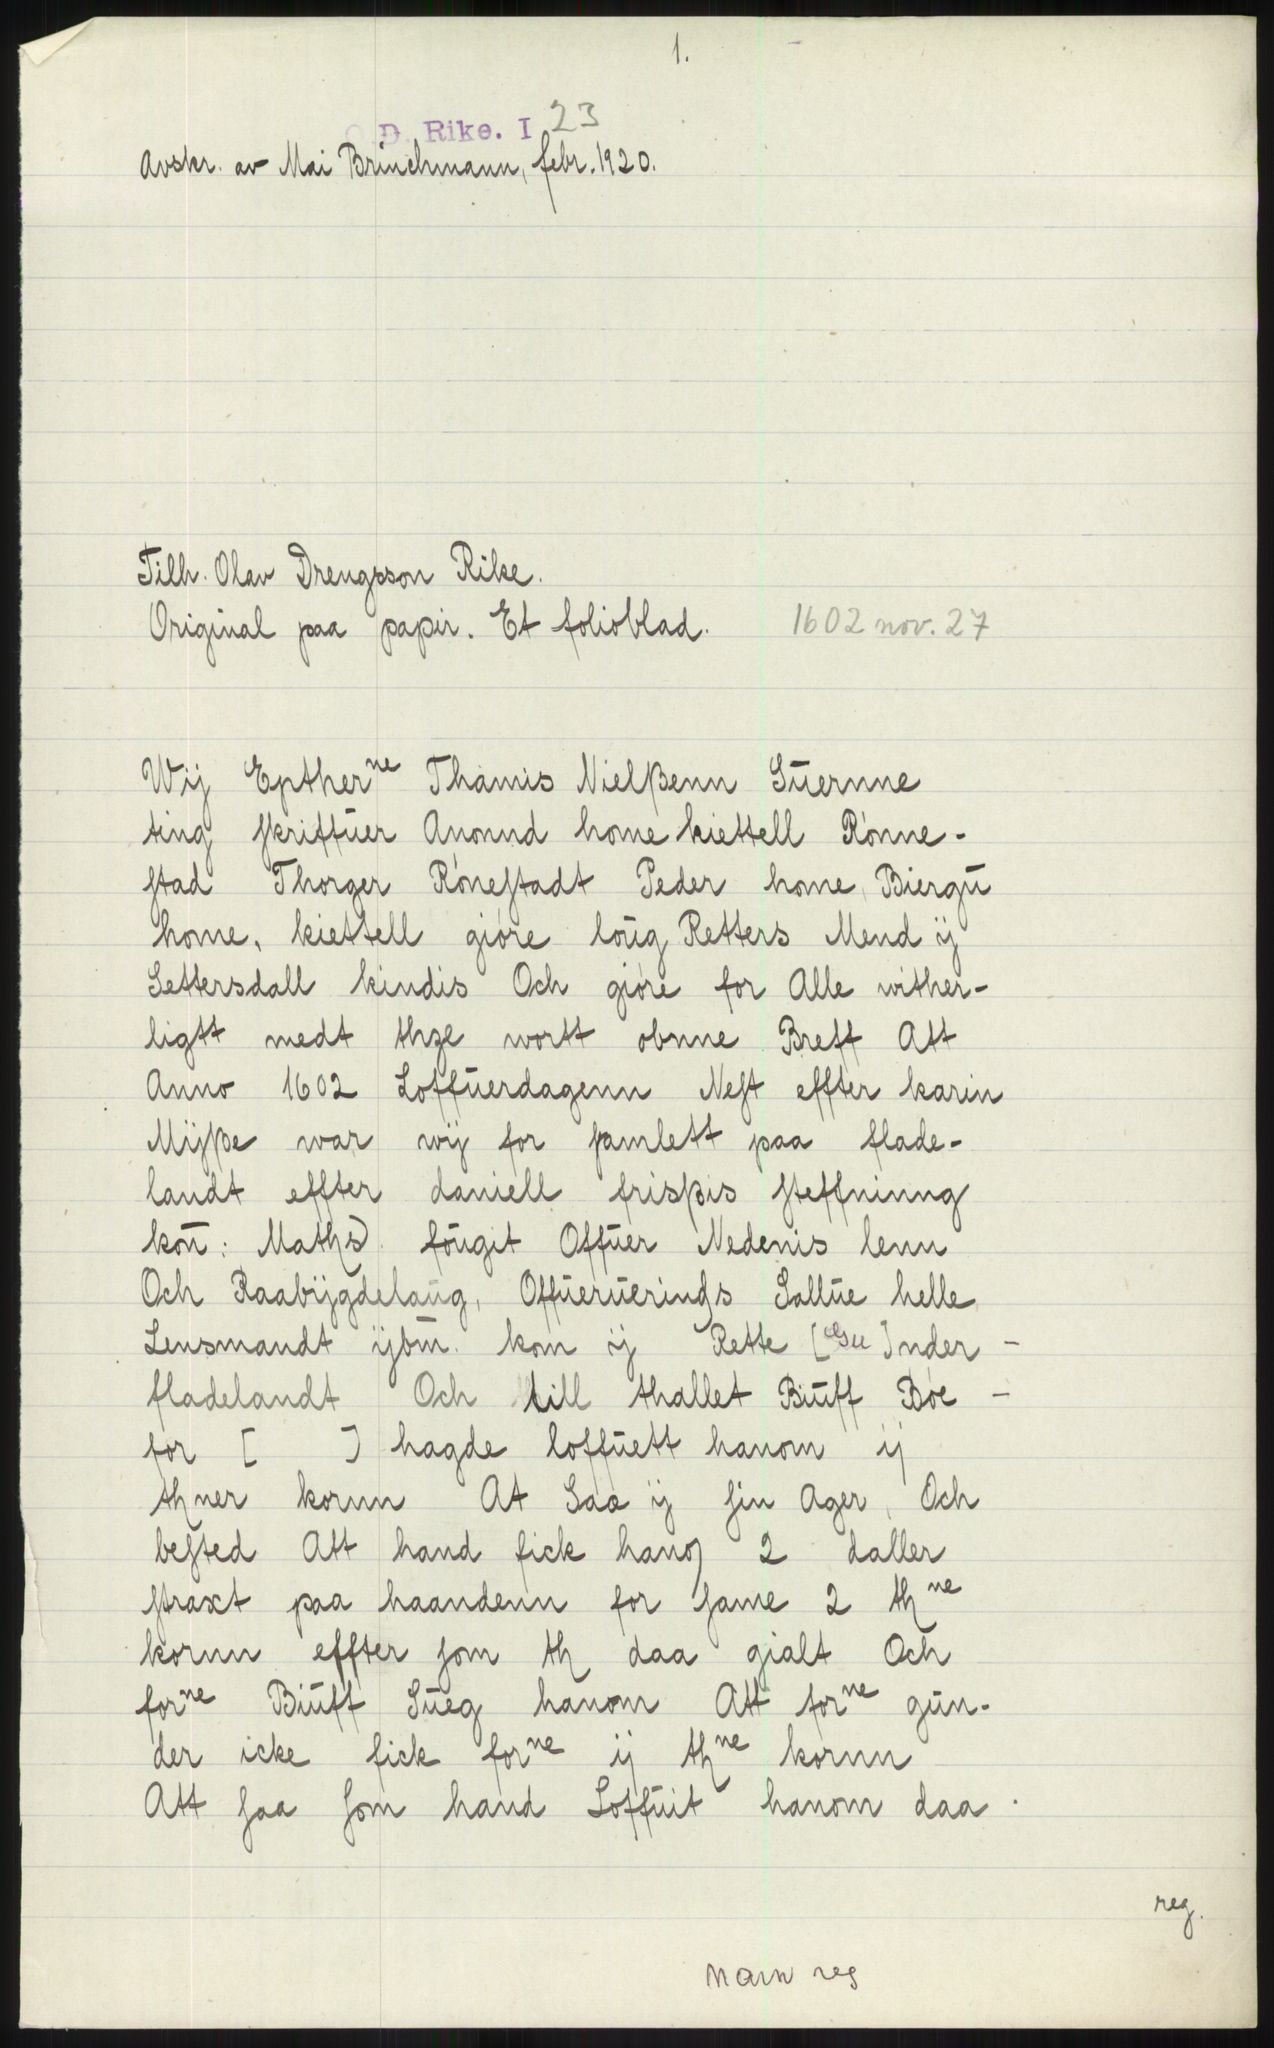 1.
O. D. Rike. I 23
Avskr. av Mai Brinchmann, febr. 1920.
Tilh. Olav Drengsson Rike.
Original paa papir. Et folioblad. 1602 nov. 27
Wij Epther ne Thamis Nielßenn Suernne
ting skriffuer Anonnd home kiettell Rønne-
stad Thorger Rønestadt Peder home, Biergu
home, kiettell giøre loug Retters Mend ij
Settersdall kindis Och giøre for Alle wither-
ligtt medt thze wortt obnne Breff Att
Anno 1602 Loffuerdagenn Nest effter karin
Mijße war wij for samlett paa flade-
landt effter daniell frisßis steffninng
kon: Mathz fougit Offuer Nedenis lenn
Och Raabijgdelaug, Offueruerinds Sallue helle
Lensmandt ijbm. kom ij Rette [Gu]nder -
fladelandt Och till thallet Biuff Bøe -
for [ ] hagde loffuett hanom ij
thner kornn At Saa ij sin Ager, Och
bested Att hand fick hanom 2 daller
straxt paa haandenn for same 2 th ne
kornn effter som th daa gialt Och
for ne Biuff Sueg hanom Att for ne gun-
der icke fick for ne ij th ne kornn
Att saa som hand Loffuit hanom daa
reg.
navn reg